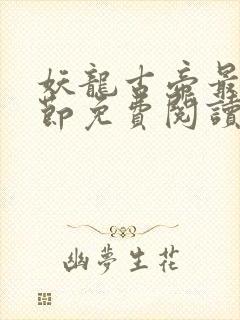 妖龍古帝最
節免費閱讀
幽夢生花